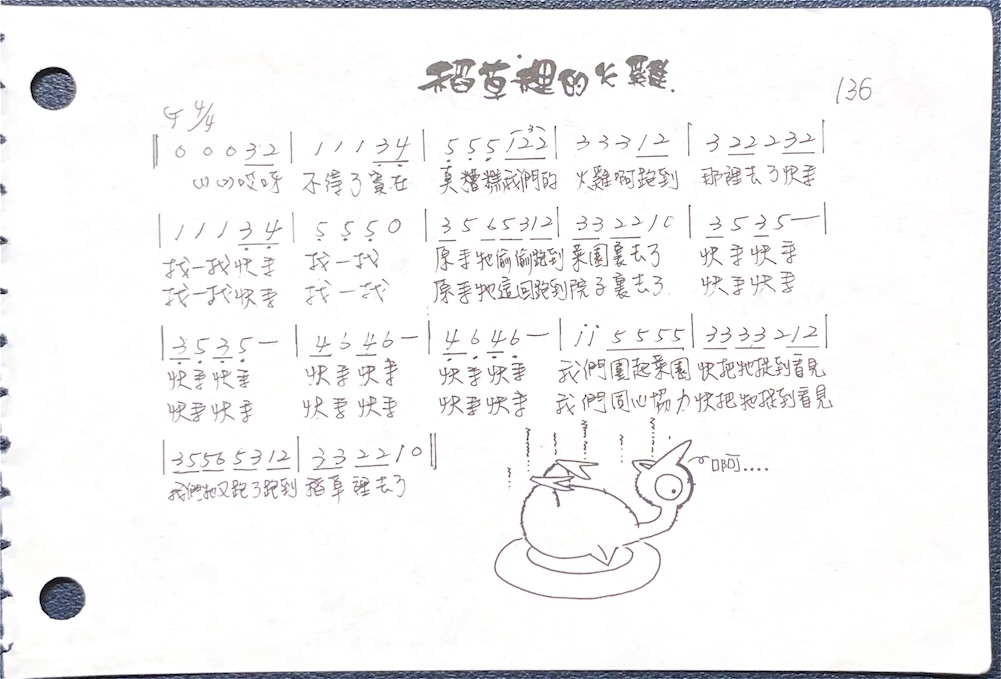 稻草裡的火雞
136
G 4/4
‖ 0 0 0 3 2 | 1 1 1 3 4 | 5 5 5 1 2 2 | 3 3 3 1 2 | 3 2 2 2 3 2 |
哎呀 不得了實在 真糟糕我們的 火雞啊跑到 那裡去了快來
| 1 1 1 3 4 | 5 5 5 0 | 3 5 6 5 3 1 2 | 3 3 2 2 1 0 | 3 5 3 5 — |
找一找快來 找一找 原來牠偷偷跑到 菜園裏去了 快來快來
找一找快來 找一找 原來牠這回跑到院子裏去了 快來快來
| 3 5 3 5 — | 4 6 4 6 — | 4 6 4 6 — | i i 5 5 5 5 | 3 3 3 3 2 1 2 |
快來快來 快來快來 快來快來 我們圍起菜園 快把牠捉到看見
快來快來 快來快來 快來快來 我們同心協力快把牠捉到看見
| 3 5 5 6 5 3 1 2 | 3 3 2 2 1 0 ‖
我們牠又跑了跑到 稻草裡去了
啊....